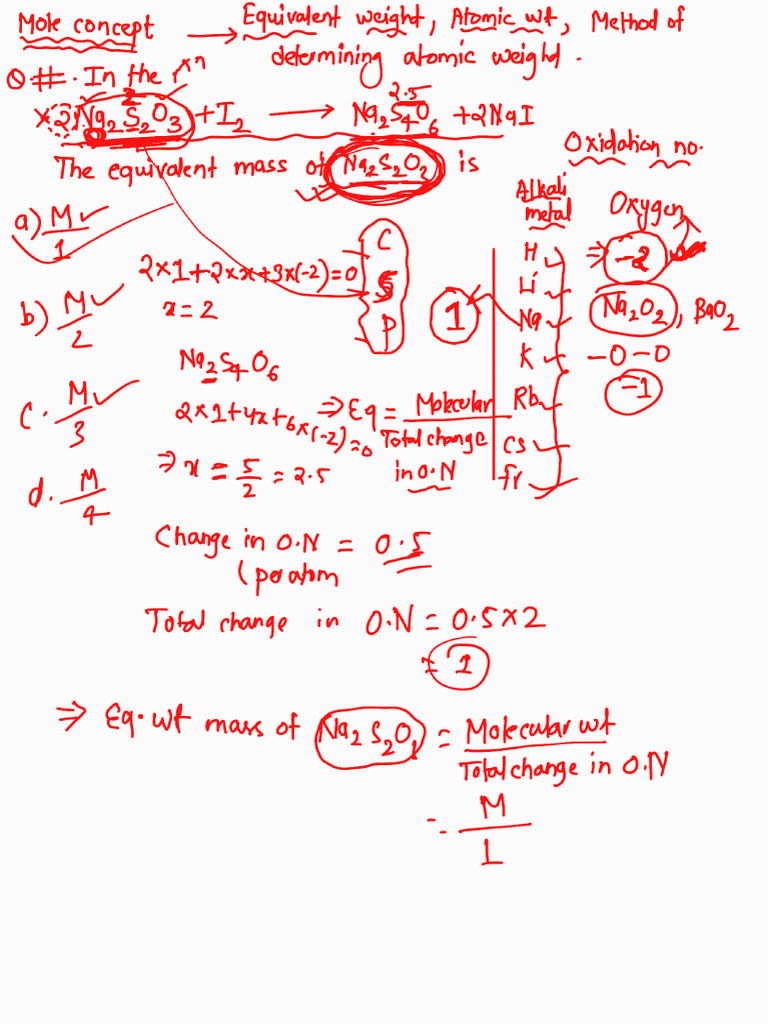 Mole concept → Equivalent weight, Atomic wt, Method of
determining atomic weight.
Q #. In the rxn
2Na2S2O3 + I2 → Na2S4O6 + 2NaI
2
2.5
The equivalent mass of Na2S2O3 is
a) M/1
b) M/2
c. M/3
d. M/4
2×1+2×x+3×(-2)=0
x=2
Na2S4O6
2×1+4x+6×(-2)=0
⇒ x = 5/2 = 2.5
C
S
P
1
⇒ Eq = Molecular / Total change in O.N
Oxidation no.
Alkali metal
H
Li
Na
K
Rb
Cs
fr
Oxygen
⇒ -2
Na2O2, BaO2
-O-O
-1
Change in O.N = 0.5
(per atom
Total change in O.N = 0.5×2
= 1
⇒ Eq. wt mass of Na2S2O3 = Molecular wt / Total change in O.N
= M/1